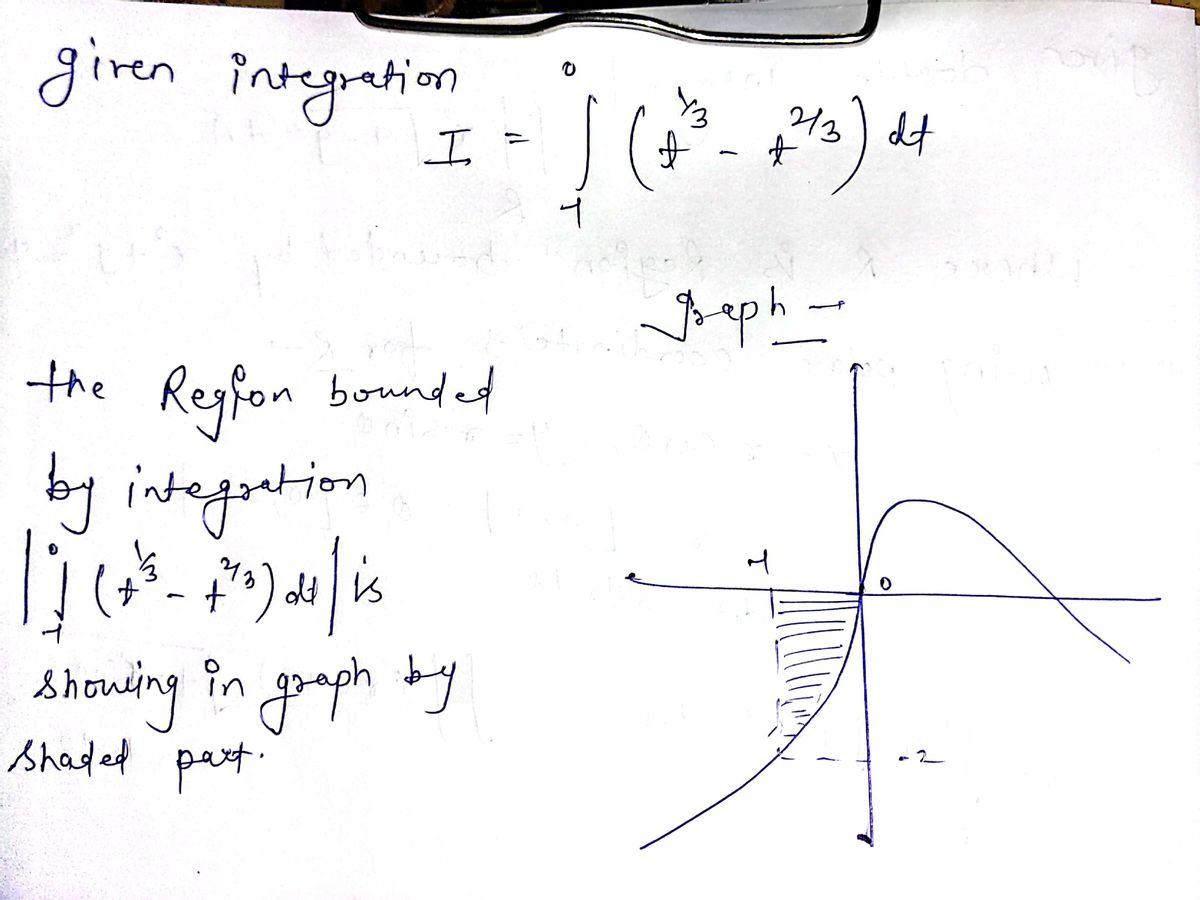 given integration
I = ∫₋₁⁰ (t^1/3 - t^2/3) dt
graph →
the Region bounded
by integration
|∫₋₁⁰ (t^1/3 - t^2/3) dt| is
showing in graph by
shaded part.
-1
0
-2